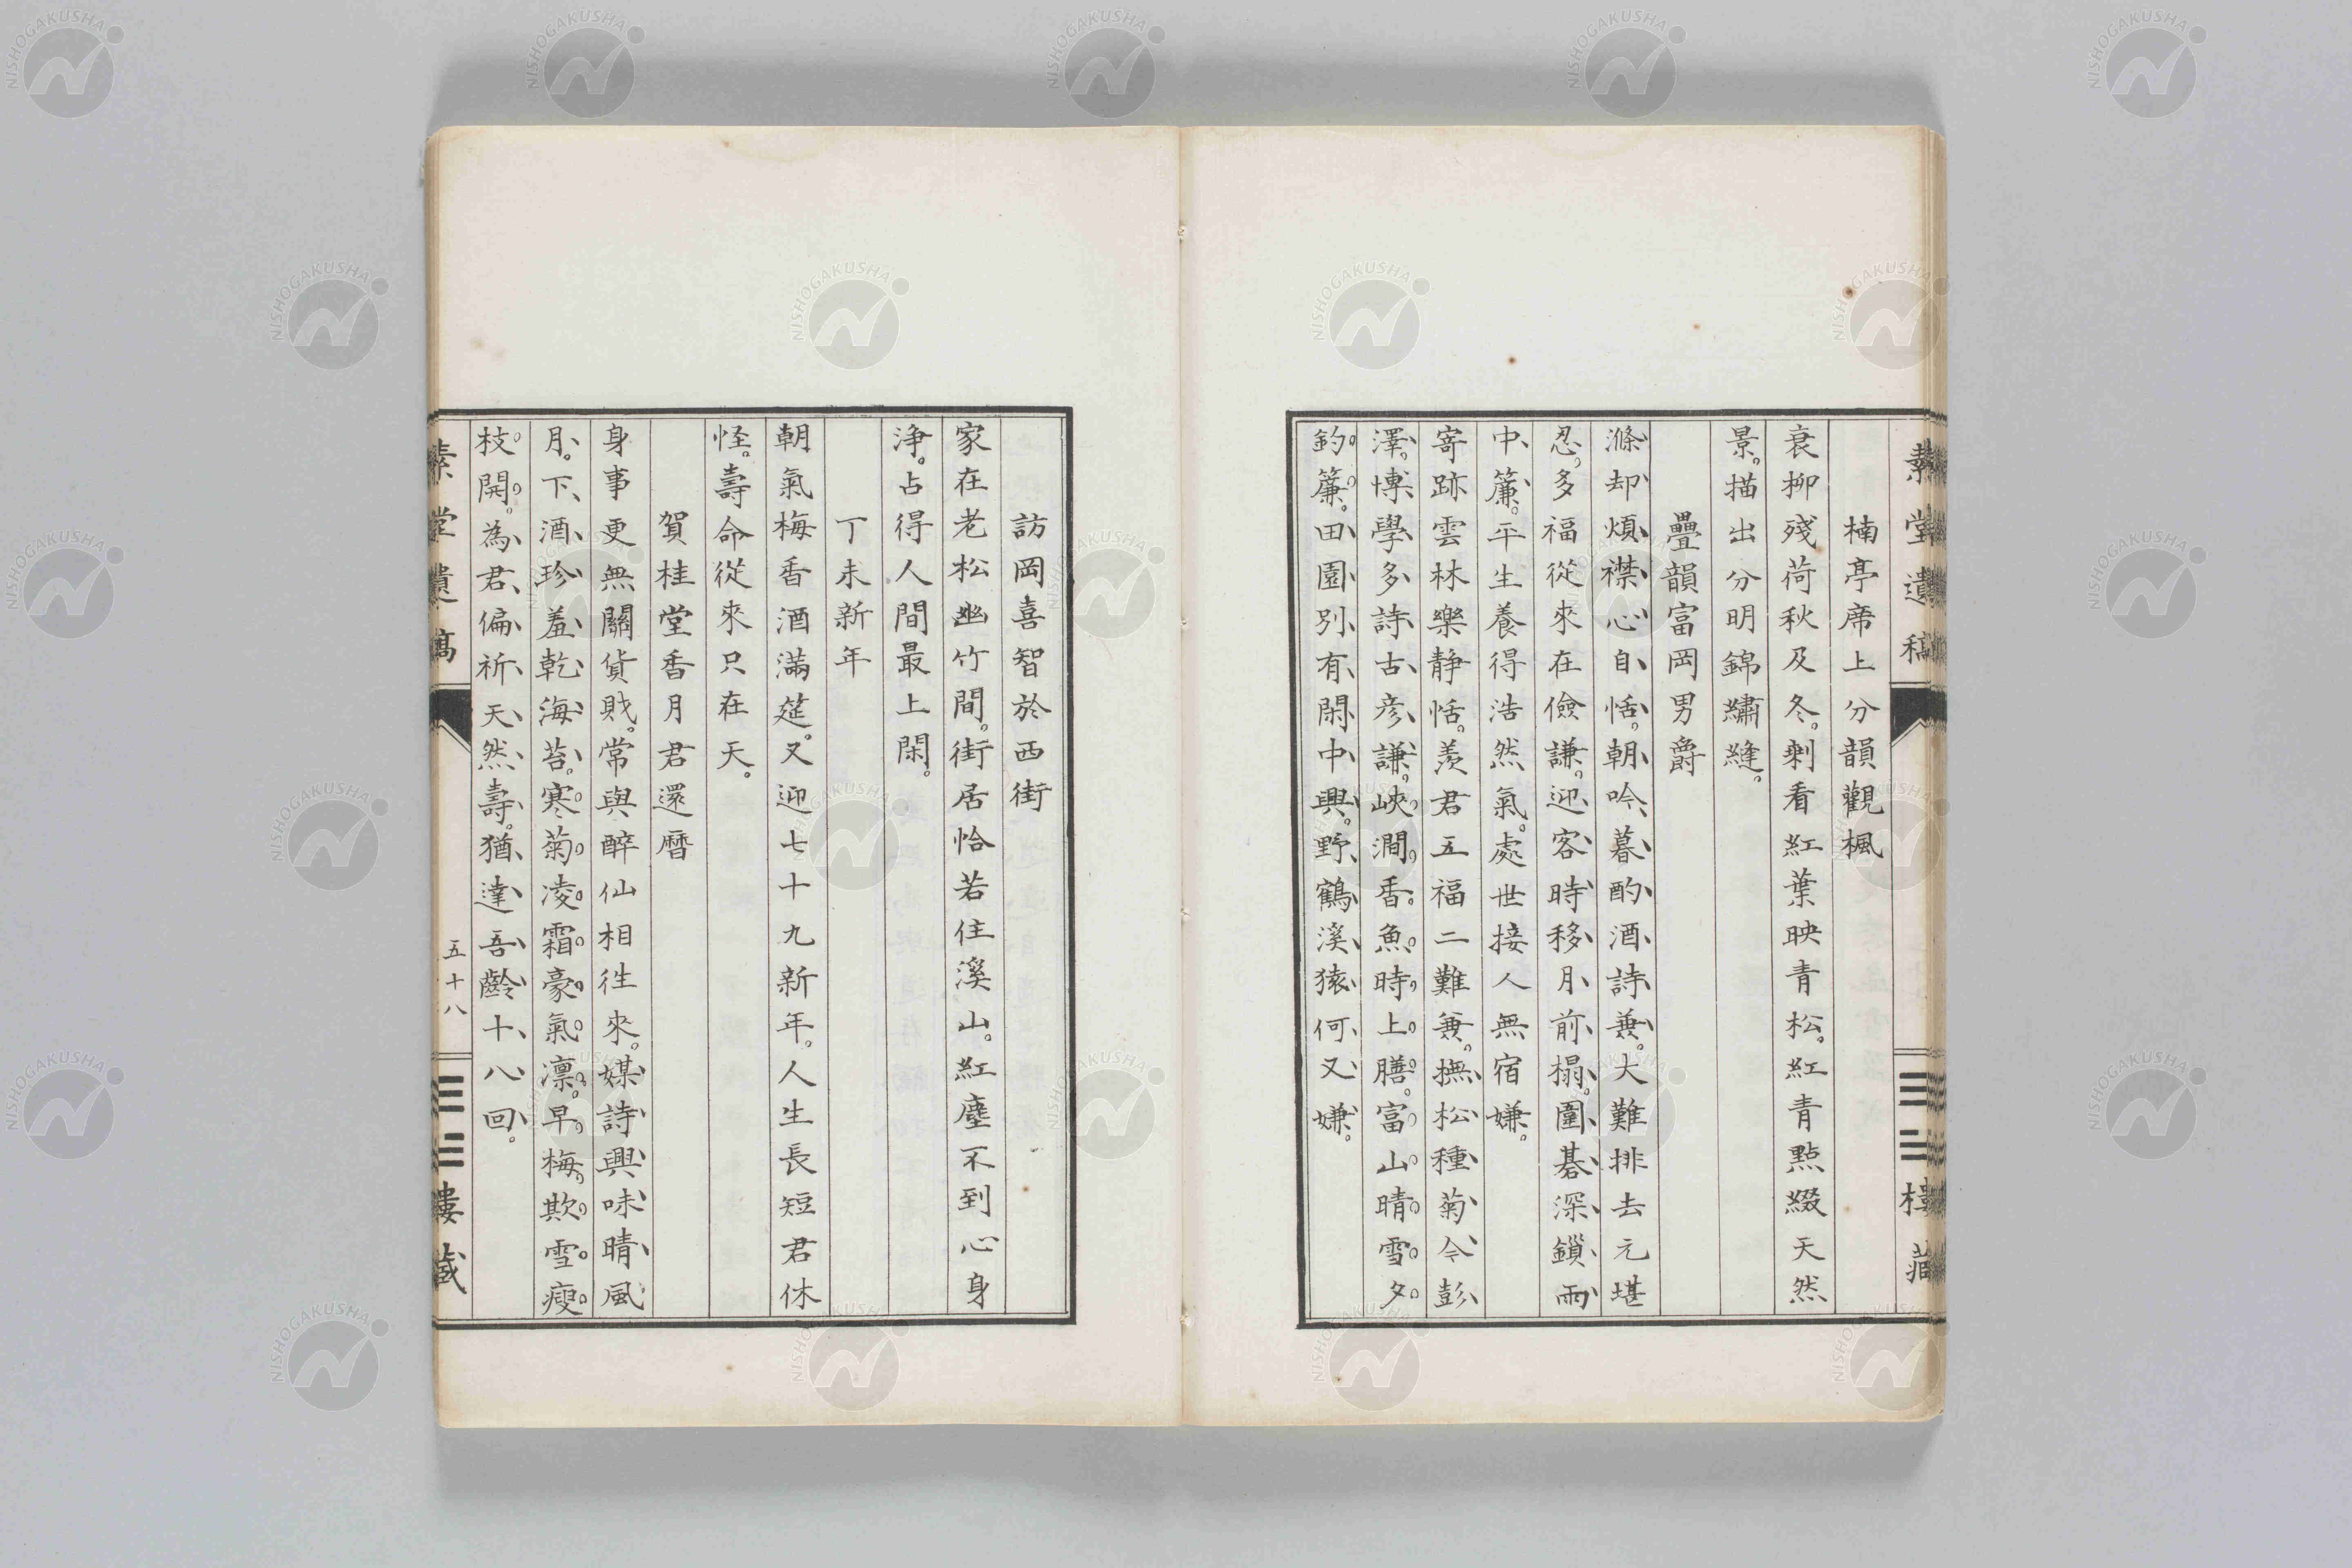 素堂遺稿
楠亭席上分韻觀楓
衰柳殘荷秋及冬。剩看紅葉映青松。紅青點綴天然
景。描出分明錦繡縫。
疊韻富岡男爵
滌却煩襟心自恬。朝吟暮酌酒詩兼。大難排去元堪
忍。多福從來在儉謙。迎客時移月前榻。圍碁深鎖雨
中簾。平生養得浩然氣。處世接人無宿嫌。
寄跡雲林樂静恬。羨君五福二難兼。撫松種菊今彭
澤。博學多詩古彦謙。峽澗香魚時上膳。富山晴雪夕
釣簾。田園別有閑中興。野鶴溪猿何又嫌。
三三樓藏
訪岡喜智於西街
家在老松幽竹間。街居恰若住溪山。紅塵不到心身
浄。占得人間最上閑。
丁未新年
朝氣梅香酒滿筵。又迎七十九新年。人生長短君休
怪。壽命從來只在天。
賀桂堂香月君還曆
身事更無關貨財。常與醉仙相徃來。媒詩興味晴風
月。下酒珍羞乾海苔。寒菊凌霜豪氣凛。早梅欺雪瘦
枝開。為君偏祈天然壽。猶達吾齡十八回。
素堂遺稿
五十八
三三樓藏
NISHOGAKUSHA